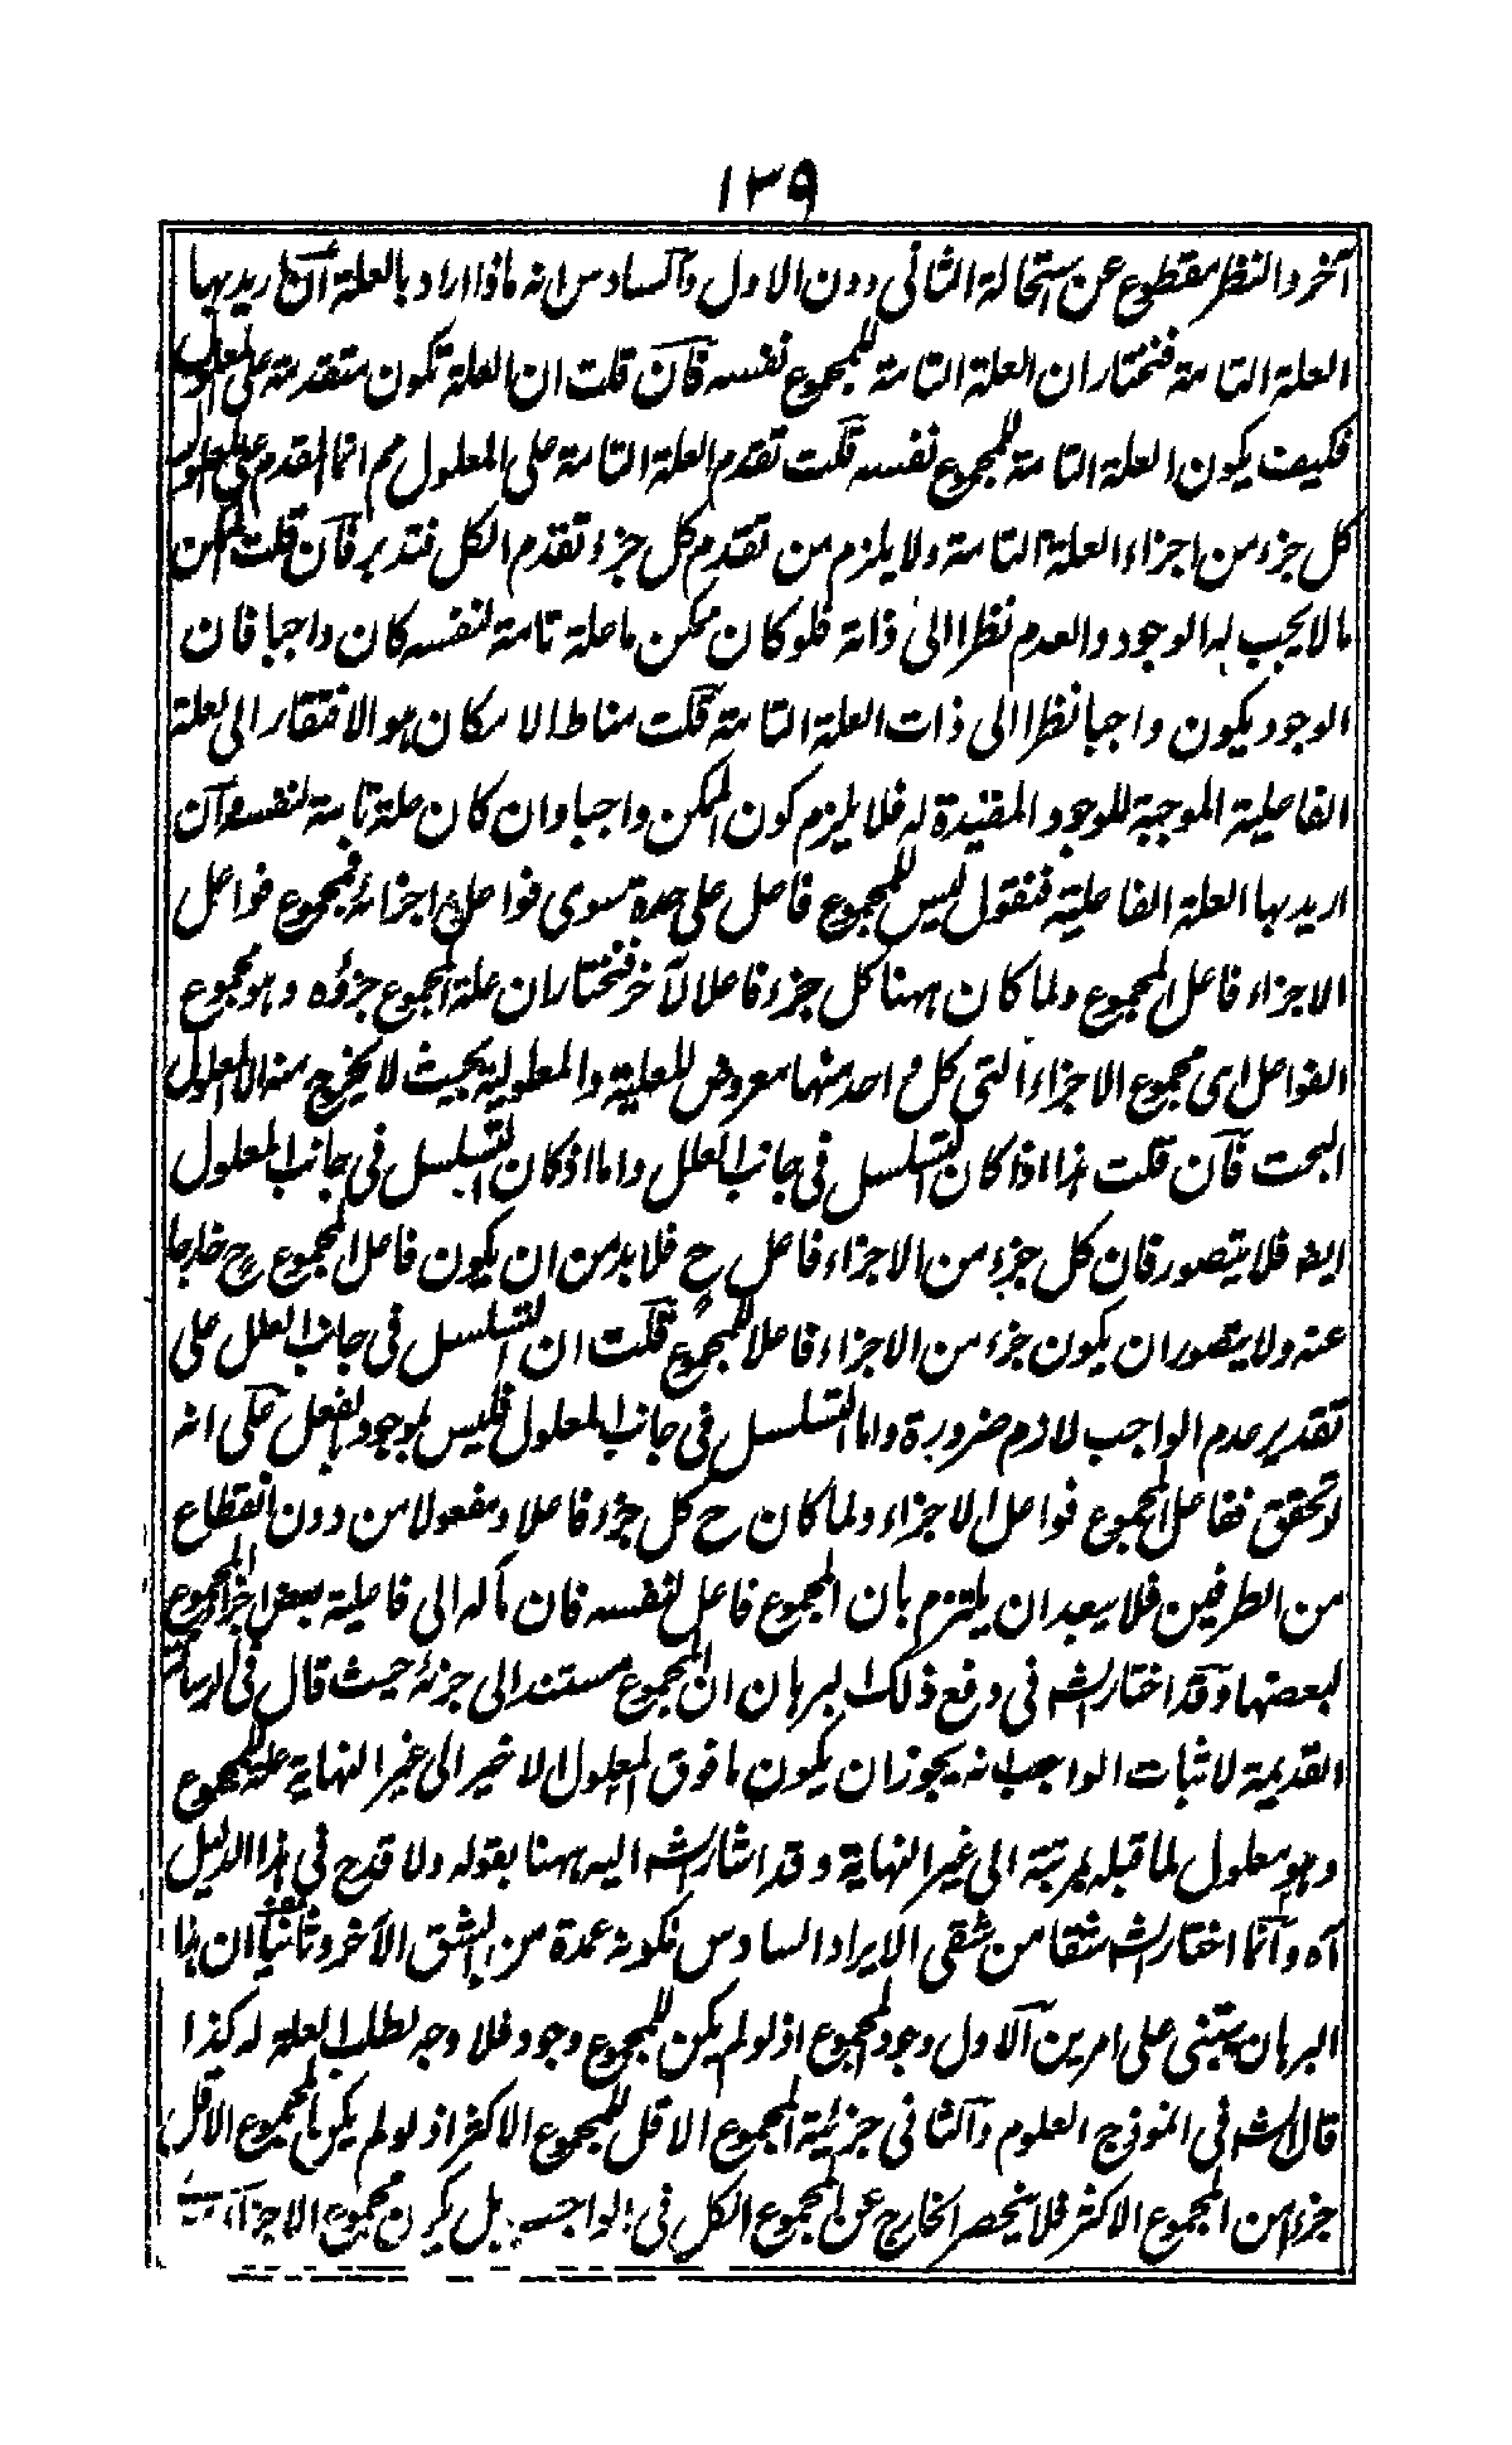 ١٣٩
آخر والنظر مقطوع عن استحالة الثاني دون الاول والسادس انه ماذا اراد بالعلة ان اريد بها
العلة التامة فنختار ان العلة التامة للمجموع نفسه فان قلت ان العلة تكون متقدمة على المعلول
فكيف يكون العلة التامة للمجموع نفسه قلت تقدم العلة التامة على المعلول مم انما المقدم على المعلول
كل جزء من اجزاء العلة التامة ولا يلزم من تقدم كل جزء تقدم الكل فتدبر فان قلت الممكن
ما لا يجب له الوجود والعدم نظرا الى ذاته فلو كان ممكن ما علة تامة لنفسه كان واجبا فان
الوجود يكون واجبا نظرا الى ذات العلة التامة قلت مناط الامكان هو الافتقار الى العلة
الفاعلية الموجبة للوجود المفيدة له فلا يلزم كون الممكن واجبا وان كان علة تامة لنفسه وان
اريد بها العلة الفاعلية فنقول ليس للمجموع فاعل على حدة سوى فواعل اجزائه فمجموع فواعل
الاجزاء فاعل المجموع ولما كان ههنا كل جزء فاعلا لآخر فنختار ان علة المجموع جزؤه وهو مجموع
الفواعل اى مجموع الاجزاء التي كل واحد منها معروض للعلية والمعلولية بحيث لا يخرج منه الا المعلول
البحت فان قلت هذا اذا كان التسلسل في جانب العلل واما اذ كان التسلسل في جانب المعلول
ايضه فلا يتصور فان كل جزء من الاجزاء فاعل ح فلا بد من ان يكون فاعل المجموع ح خارجا
عنه ولا يتصور ان يكون جزء من الاجزاء فاعلا للمجموع قلت ان التسلسل في جانب العلل على
تقدير عدم الواجب لازم ضرورة واما التسلسل في جانب المعلول فليس بموجود بالفعل على انه
لو تحقق ففاعل المجموع فواعل الاجزاء ولما كان ح كل جزء فاعلا ومفعولا من دون انقطاع
من الطرفين فلا يبعد ان يلتزم بان المجموع فاعل لنفسه فان مآله الى فاعلية بعض اجزاء المجموع
لبعضها وقد اختار الشه في دفع ذلك البرهان ان المجموع مستند الى جزئه حيث قال في الرسالة
القديمة لاثبات الواجب انه يجوز ان يكون ما فوق المعلول الاخير الى غير النهاية علة المجموع
وهو معلول لما قبله بمرتبة الى غير النهاية وقد اشار الشه اليه ههنا بقوله ولا قدح في هذا الدليل
آه وانما اختار الشه شقا من شقى الايراد السادس لكونه عمدة من الشق الآخر وثانيا ان هذا
البرهان يبتنى على امرين الاول وجود المجموع اذ لو لم يكن للمجموع وجود فلا وجه لطلب العلة له كذا
قال الشه في انموذج العلوم والثاني جزئية المجموع الاقل للمجموع الاكثر اذ لو لم يكن المجموع الاقل
جزءا من المجموع الاكثر فلا ينحصر الخارج عن المجموع الكل في الواجب بل يكون مجموع الاجزاء